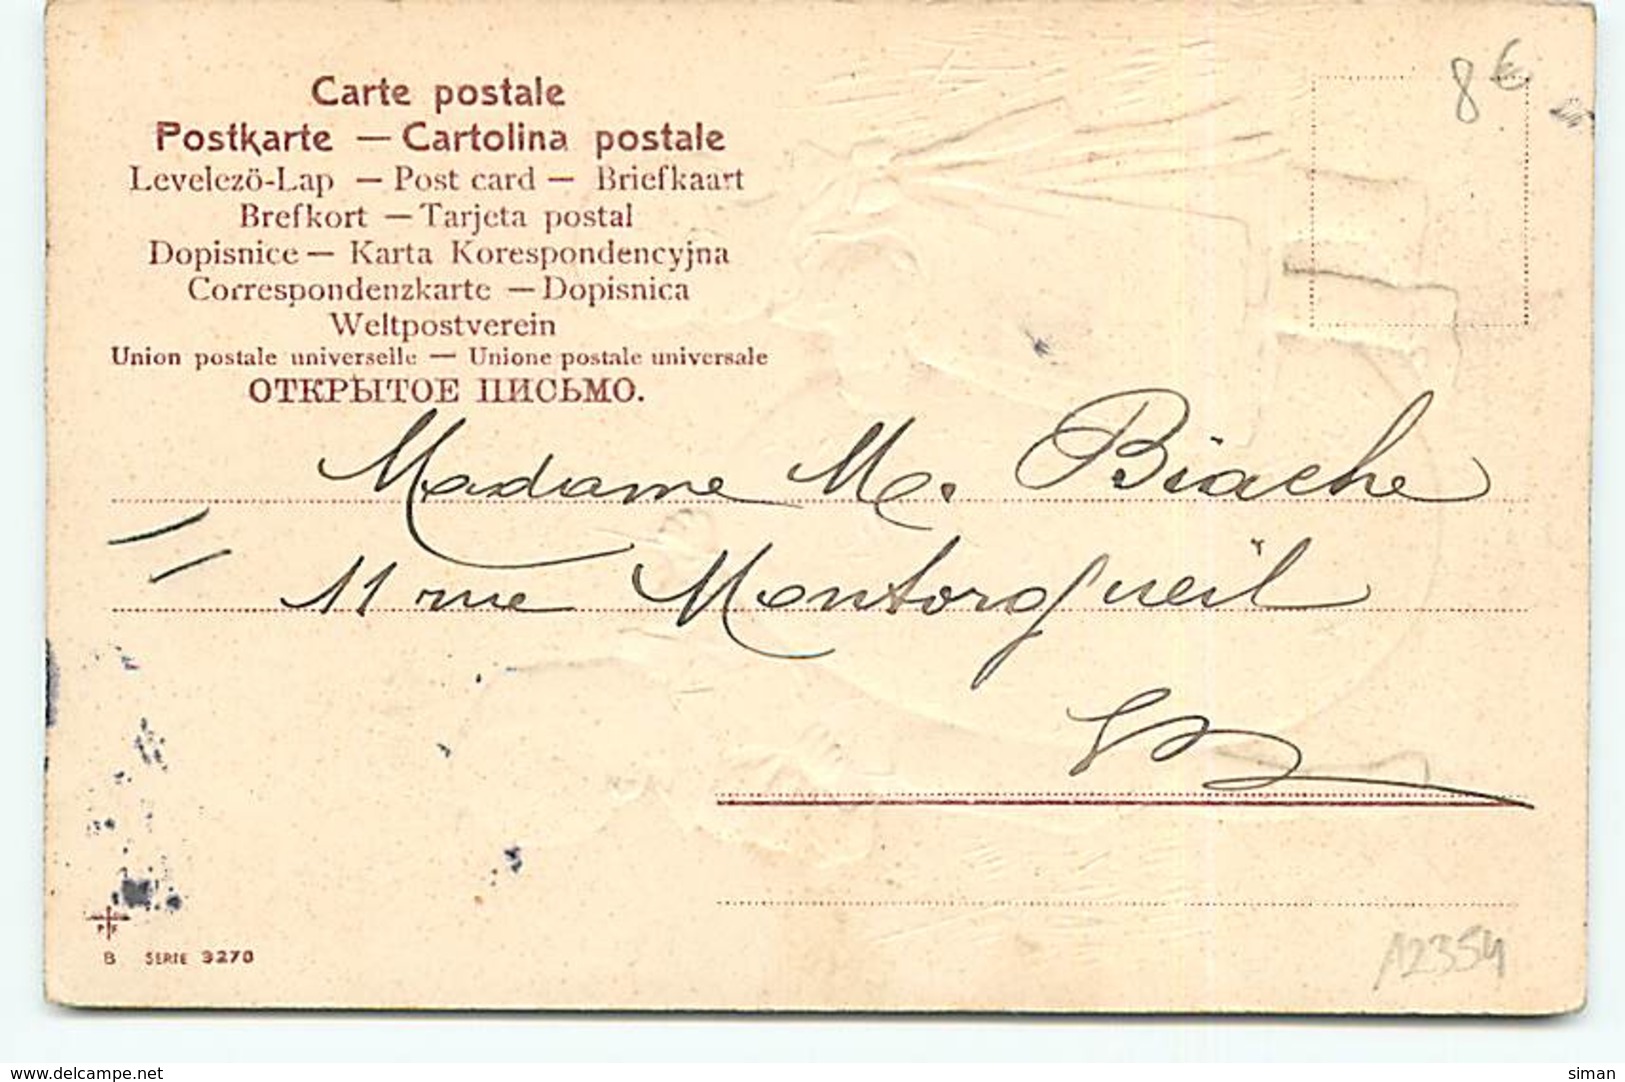 8€
Carte postale
Postkarte — Cartolina postale
Levelezö-Lap — Post card — Briefkaart
Brefkort — Tarjeta postal
Dopisnice — Karta Korespondencyjna
Correspondenzkarte — Dopisnica
Weltpostverein
Union postale universelle — Unione postale universale
ОТКРЫТОЕ ПИСЬМО.
Madame M. Biache
11 rue Montorgueil
PF
B SERIE 3270
12354
www.delcampe.net
siman